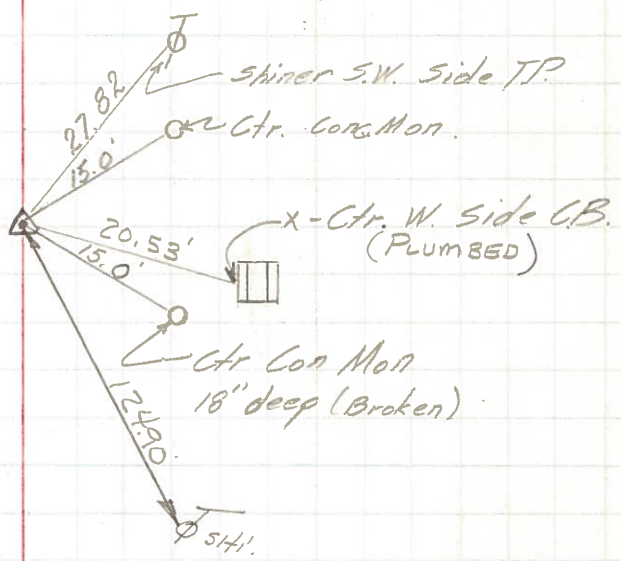 27.82
shiner S.W. Side T.P.
Ctr. Conc. Mon.
15.0'
20.53'
X-Ctr. W. Side C.B.
(PLUMBED)
15.0'
Ctr Con Mon
18" deep (Broken)
124.90
SHI.